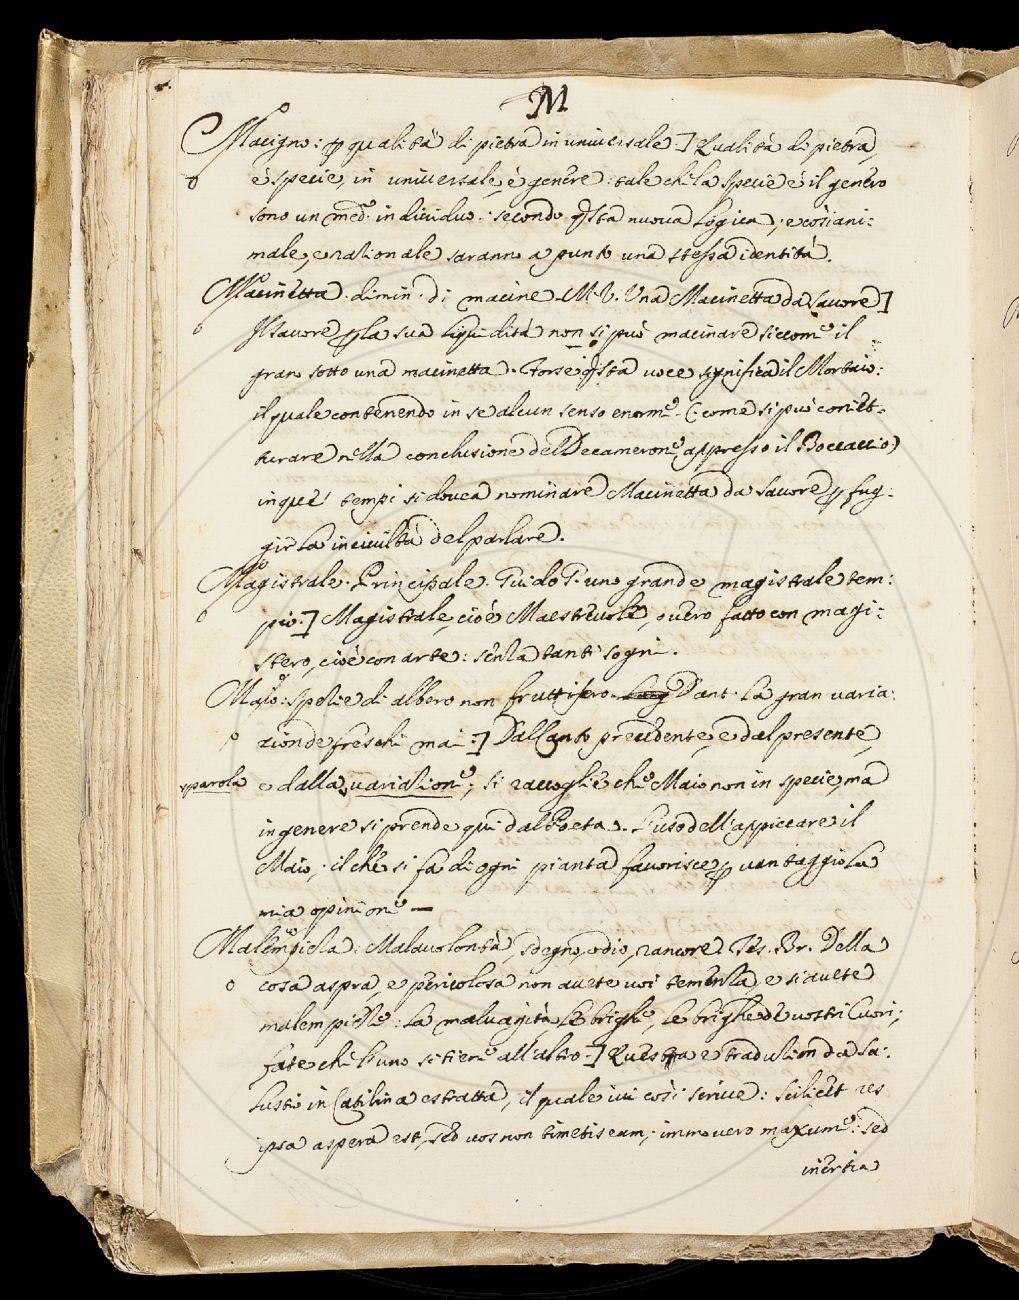 M
Macigno: p qualità di pietra in universale] Qualità di pietra,
è specie, in universale, è genere: tale che la specie e il genero
sono un med.º individuo: secondo qsta nuova Logica; e così ani:
male, e rationale saranno a punto una stessa identità.
Macinetta. dimin. di macine. M. V. Una Macinetta da savore]
Il savore p la sua liquidità non si può macinare siccome il
grano sotto una macinetta. Forse qsta voce significa il Mortaio:
il quale contenendo in se alcun senso enorme (: come si può coniet:
turare nella conclusione del Decamerone, appresso il Boccaccio)
in que' tempi si dovea nominare Macinetta da savore p fug:
gir la inciviltà del parlare.
Magistrale. Principale. Guido G. uno grande magistrale tem:
pio.] Magistrale, cioè Maestrevole, overo fatto con magi:
stero, cioè con arte: senza tanti sogni.
Maio: spetie di albero non fruttifero. Dant. La gran varia:
zion de freschi mai:] Dal Canto precedente, e dal presente,
parola
e dalla, variatione; si raccoglie che Maio non in specie, ma
in genere si prende qui dal Poeta. L'uso dell'appiccare il
Maio; il che si fa di ogni pianta favorisce p vantaggio la
mia opinione —
Malempiela: Malavolontà, sdegno, odio, rancore. Tes. Br. Della
cosa aspra, e pericolosa non avete voi temenza, e si avete
malempielle: la malvagità, le brighe, le brighe de vostri Cuori;
fate che l'uno si tiene all'altro.] Questa e traduzion da Sa:
lustio in Catilina estratta, il quale ivi così scrive: Scilicet res
ipsa aspera est, sed vos non timetis eam; immo vero maxume: sed
inertia